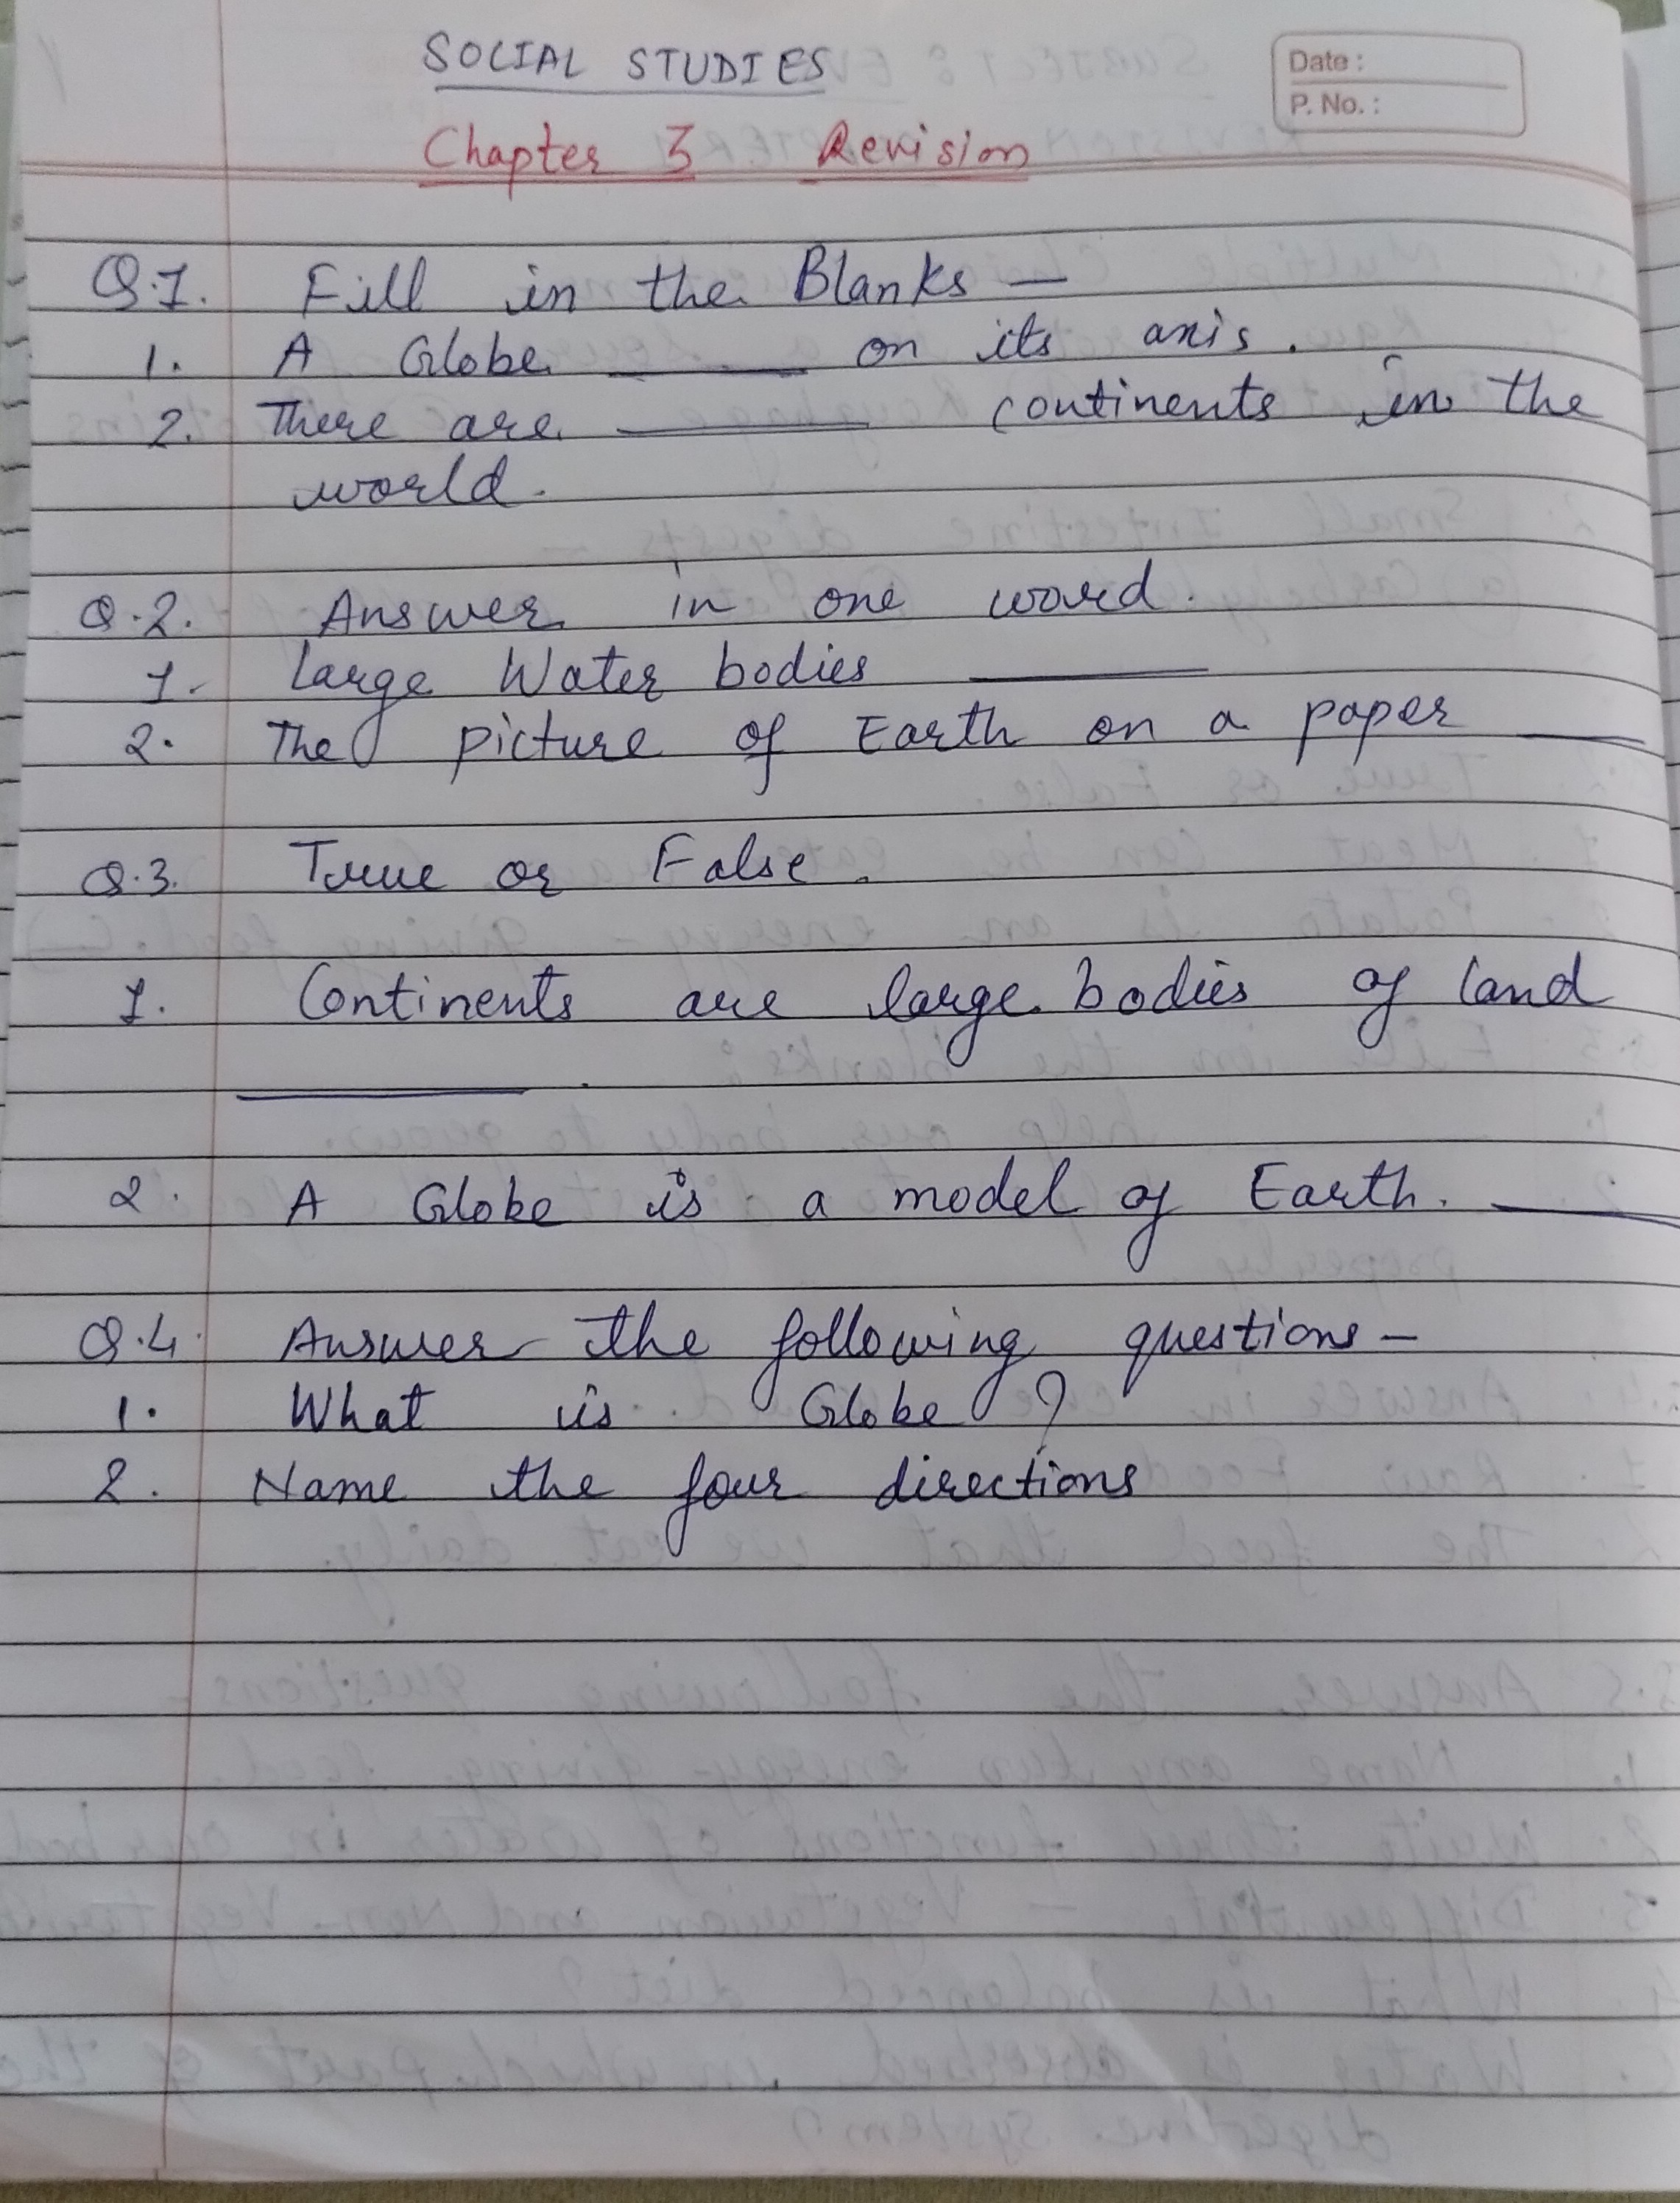 SOCIAL STUDIES
Date :
P. No. :
Chapter 3 Revision
Q.1. Fill in the Blanks —
1. A Globe ______ on its axis.
2. There are ______ continents in the
world.
Q.2. Answer in one word.
1. Large Water bodies ______
2. The picture of Earth on a paper ______
Q.3. True or False.
1. Continents are large bodies of land
______.
2. A Globe is a model of Earth. ______
Q.4. Answer the following questions —
1. What is Globe ?
2. Name the four directions